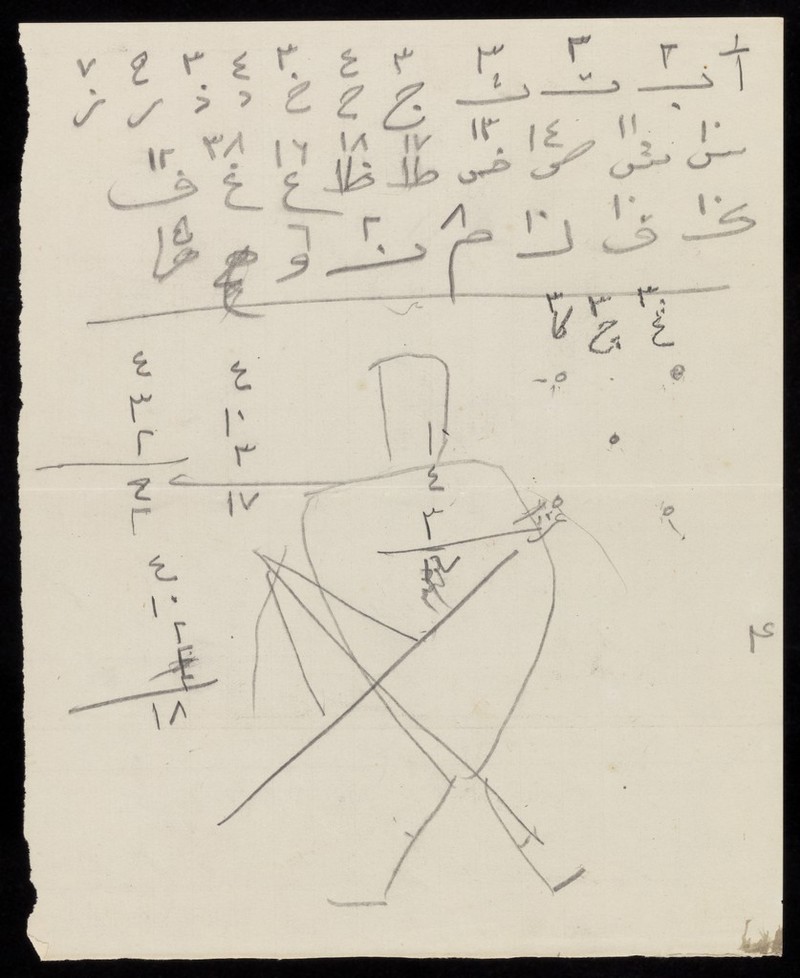 ١ ٢ ٣ ٣ ٣ ٤ ٣ ٤ ٣ ٩ ٧
ا ب ت ث ج ح خ د ذ ر ز
١٠ ١١ ١٤ ١٣ ١٧ ١٨ ١٦ ٣٨ ١٢
س ش ص ض ط ظ ع غ ف
١٠ ١٠ ١٠ ٨ ٢ ٦ ٥
ک ق ل م ن و ھا
٣ ٣ ٣
چ
١٠
٤
٣
٤
١٠
٣
١٧
٤
٣
٢
٤
١٠
١٨